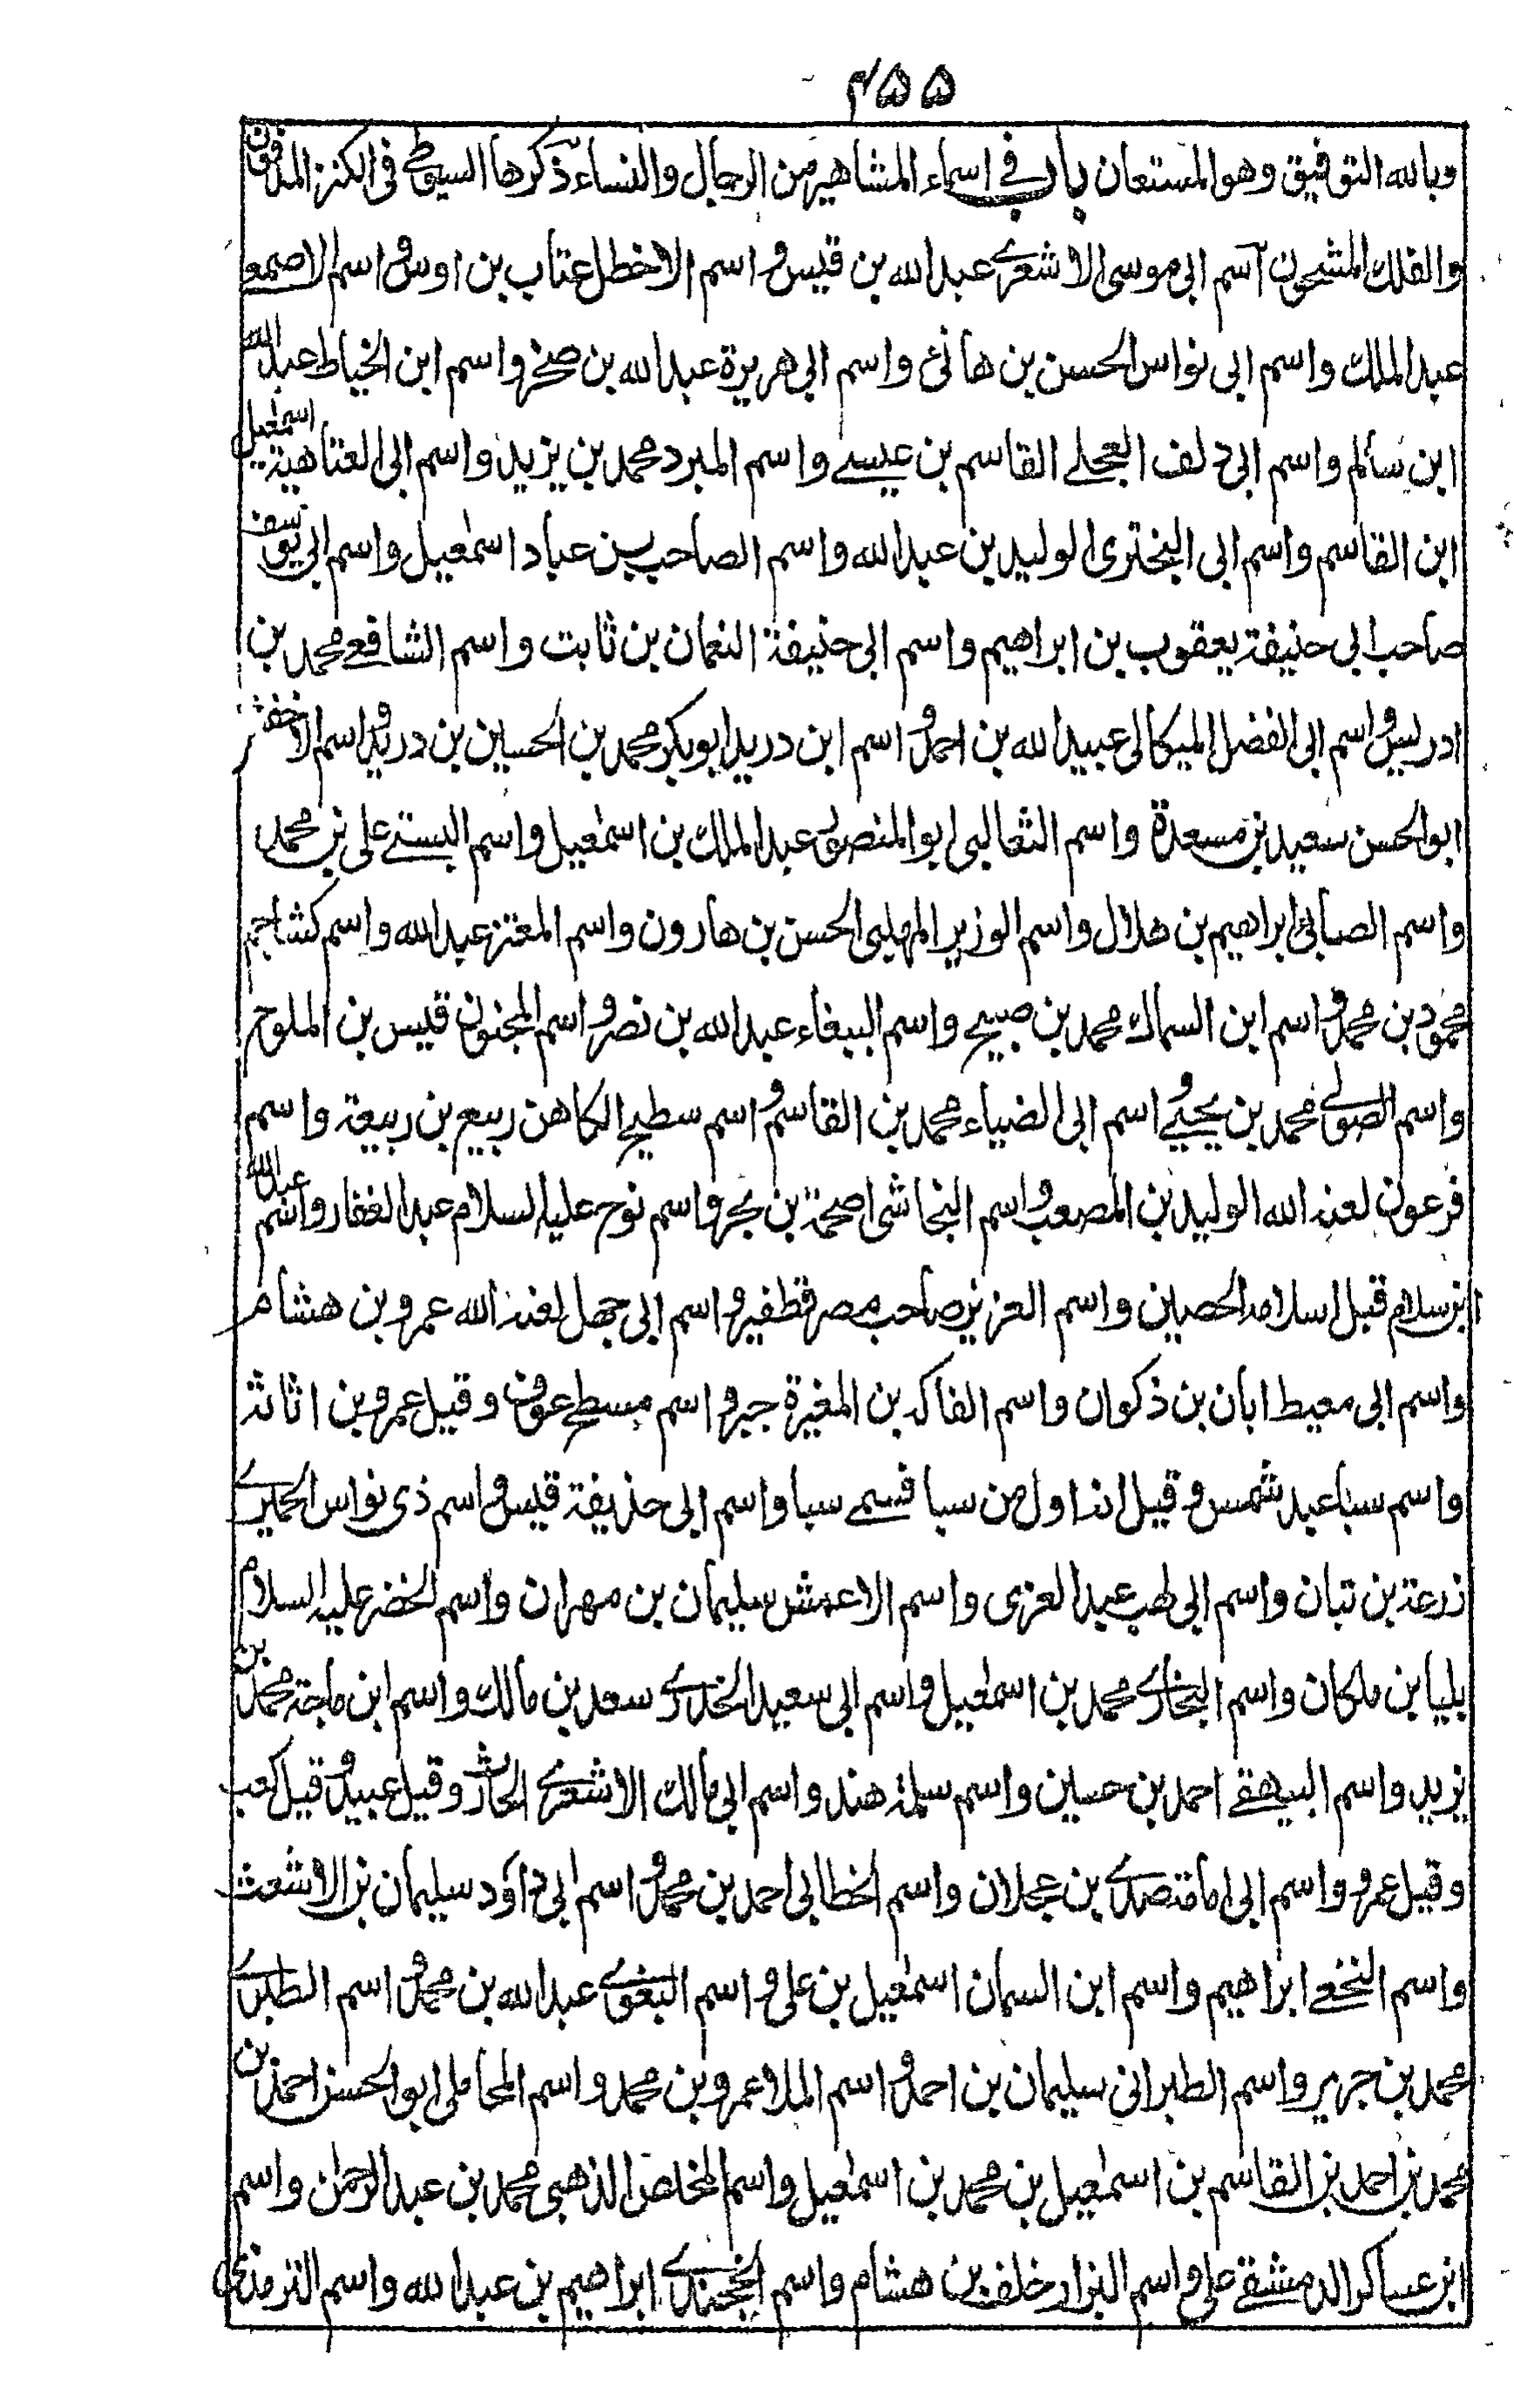 ۴۵۵
وبالله التوفيق وهو المستعان باب في اسماء المشاهير من الرجال والنساء ذكرها السيوطي في الكنز المدفون
والفلك المشحون اسم ابي موسى الاشعري عبد الله بن قيس و اسم الاخطل عتاب بن اوس و اسم الاصمعي
عبد الملك و اسم ابي نواس الحسن بن هانئ و اسم ابي هريرة عبد الله بن صخر و اسم ابن الخياط عبد الله
ابن سالم و اسم ابي دلف العجلي القاسم بن عيسى و اسم المبرد محمد بن يزيد و اسم ابي العتاهية اسمعيل
ابن القاسم و اسم ابي البختري الوليد بن عبد الله و اسم الصاحب بن عباد اسمعيل و اسم ابي يوسف
صاحب ابي حنيفة يعقوب بن ابراهيم و اسم ابي حنيفة النعمان بن ثابت و اسم الشافعي محمد بن
ادريس و اسم ابي الفضل الميكالي عبيد الله بن احمد و اسم ابن دريد ابو بكر محمد بن الحسين بن دريد و اسم الاخفش
ابو الحسن سعيد بن مسعدة و اسم الثعالبي ابو المنصور عبد الملك بن اسمعيل و اسم البستي علي بن محمد
و اسم الصابئ ابراهيم بن هلال و اسم الوزير المهلبي الحسن بن هارون و اسم المعتز عبد الله و اسم كشاجم
محمود بن محمد و اسم ابن السماك محمد بن صبيح و اسم الببغاء عبد الله بن نصر و اسم المجنون قيس بن الملوح
و اسم الصولي محمد بن يحيى و اسم ابي الضياء محمد بن القاسم و اسم سطيح الكاهن ربيع بن ربيعة و اسم
فرعون لعنه الله الوليد بن المصعب و اسم النجاشي اصحمة بن بحر و اسم نوح عليه السلام عبد الغفار و اسم عبد الله
ابن سلام قبل اسلامه الحصين و اسم العزيز صاحب مصر قطفير و اسم ابي جهل لعنه الله عمرو بن هشام
و اسم ابي معيط ابان بن ذكوان و اسم الفاكه بن المغيرة جبر و اسم مسطح عوف و قيل عمرو بن اثاثة
و اسم سبا عبد شمس و قيل انه اول من سبا فسمي سبا و اسم ابي حذيفة قيس و اسم ذي نواس الحميري
زرعة بن تبان و اسم ابي لهب عبد العزى و اسم الاعمش سليمان بن مهران و اسم الخضر عليه السلام
بليا بن ملكان و اسم البخاري محمد بن اسمعيل و اسم ابي سعيد الخدري سعد بن مالك و اسم ابن ماجة محمد بن
يزيد و اسم البيهقي احمد بن حسين و اسم سلمة هند و اسم ابي مالك الاشعري الحارث و قيل عبيد و قيل كعب
و قيل عمرو و اسم ابي امامة صدي بن عجلان و اسم الخطابي احمد بن محمد و اسم ابي داؤد سليمان بن الاشعث
و اسم النخعي ابراهيم و اسم ابن السمان اسمعيل بن علي و اسم البغوي عبد الله بن محمد و اسم الطبري
محمد بن جرير و اسم الطبراني سليمان بن احمد و اسم الملا عمرو بن محمد و اسم المحاملي ابو الحسن احمد بن
محمد بن احمد بن القاسم بن اسمعيل بن محمد بن اسمعيل و اسم المخلص الذهبي محمد بن عبد الرحمن و اسم
ابن عساكر الدمشقي علي و اسم البزار خلف بن هشام و اسم الخجندي ابراهيم بن عبد الله و اسم الترمذي